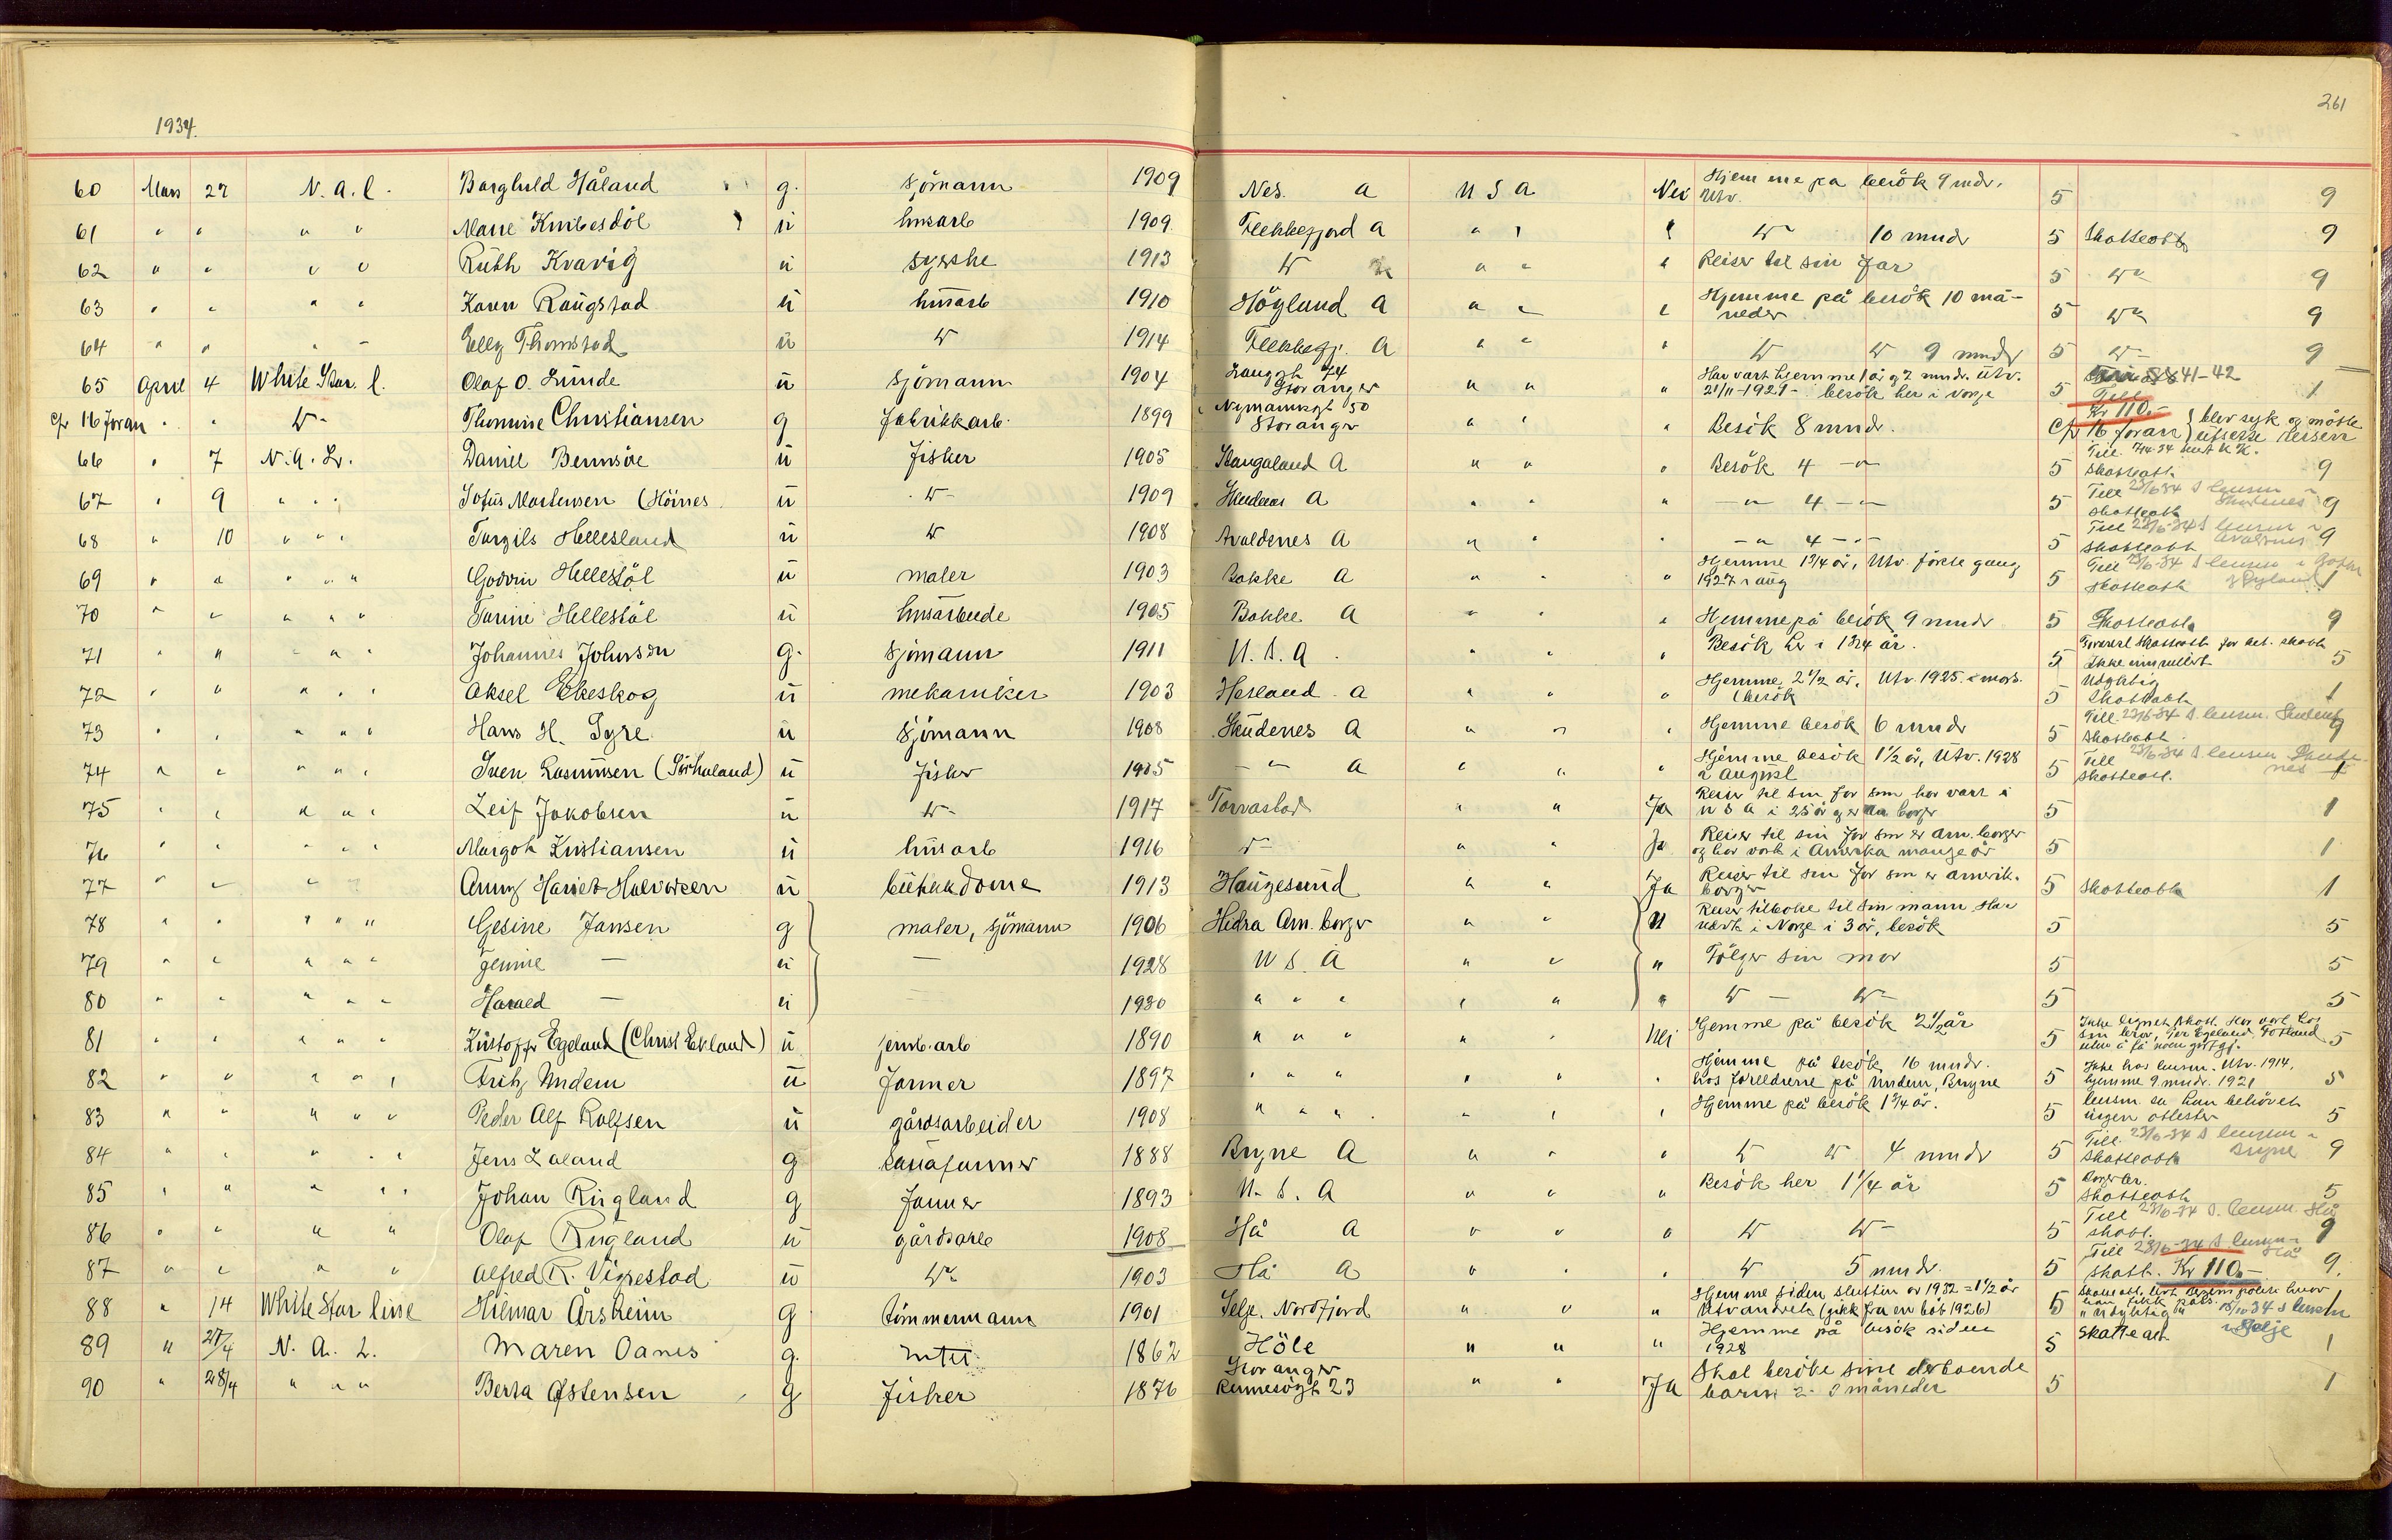 261
1934.
60 Mars 27 N. A. L. Borghild Håland g. sjömann 1909 Nes. A U S A Nei Hjemme på besök 9 mdr. Utv. 5 9
61 " " " " Marie g husarb 1909 Flekkefjord A " " " do 10 mndr 5 Skatteatt 9
62 " " " " Ruth Kvavig ü syerske 1913 do " " " Reiser til sin far 5 do 9
63 " " " " Karen Raugstad ü husarb 1910 Höyland A " " " Hjemme på besök 10 måneder 5 do 9
64 " " " " Elly Thomstad ü do 1914 Flekkefj. A " " " do do 9 mndr 5 do 9
65 April 4 White Star l. Olaf O. Lunde ü sjömann 1904 Langgt 74 Stavanger " " " Har vært hjemme 1 år og 2 mndr. Utv. 21/11-1921 - besök her i Norge 5 41-42 1
cfr 16 foran " " do Thomine Christiansen g fabrikkarb. 1899 Nymannsgt 50 Stavanger " " " Besök 8 mndr. cfr 16 foran Kr 110.- blev syk og måtte utsette reisen
66 " 7 N. A. L. Daniel Bemnsöe ü fisker 1905 Skaugaland A " " " Besök 4 -"- 5 Skatteatt 9
67 " 9 " " " Sofus Martensen (Hörnes ü do 1909 Skudenes A " " " -"- 4 -"- 5 Till 23/6 34 S lensm i Skudenes Skatteatt 9
68 " 10 " " " Torgils Hellesland ü do 1908 Avaldsnes A " " " -"- 4 -"- 5 Till 23/6-34 S lensm i Avaldsnes skatteatt 9
69 " " " " " Godvin Hellestöl ü maler 1903 Bakke A " " " Hjemme 1 3/4 år, Utv. förste gang 1927 i aug 5 Till 23/6-34 S lensm i skatteatt 1
70 " " " " " Torine Hellestöl ü husarbeide 1905 Bakke A " " " Hjemme på besök 9 mndr 5 Skatteatt 9
71 " " " " " Johannes Johnson g. sjömann 1911 U. S. A. " " " Besök her i 1 3/4 år. 5 Ikke immatrikulert 5
72 " " " " " Aksel Ekeskog ü mekaniker 1903 Hesland A " " " Hjemme 2 1/2 år, Utv. 1925 i mars. (besök 5 Utsyktig Skatteatt 1
73 " " " " " Hans H. Syre ü sjömann 1908 Skudenes A " " " Hjemme besök 6 mndr 5 Till 23/6-34 S. lensm. Skudenes Skatteatt 9
74 " " " " " Sven Rasmussen (Sörhaland) ü fisker 1905 -"- A " " " Hjemme besök 1 1/2 år, Utv. 1928 i August 5 Till 23/6-34 S lensm Skudenes skatteatt. 1
75 " " " " " Leif Jakobsen ü do 1917 Torvastad " " Ja Reiser til sin far som har vært i U S A i 25 år og er am borger 5 1
76 " " " " " Margot Kristiansen ü husarb 1916 do " " Ja Reiser til sin far som er am. borger og har vært i Amerika mange år 5 1
77 " " " Anny Hariet Halvorsen ü butikkdame 1913 Haugesund " " Ja Reiser til sin far som er amerik. borger 5 Skatteatt 1
78 " " " " " Gesine Jansen g maler, sjömann 1906 Hidra Am. borger " " " Reiser tilbake til sin mann. Har vært i Norge i 3 år, besök 5 5
79 " " " " " Jennie — ü — 1928 U S. A " " " Fölger sin mor 5 5
80 " " " " " Harald — ü — 1930 " " " " " " do - do - 5 5
81 " " " " " Kristoffer Egeland (Christ Ekland) ü jernb. arb 1890 " " " " " Nei Hjemme på besök 2 1/2 år 5 Ikke lignet skatt. Har vært hos sin bror, Tor Egeland 5
82 " " " " " Fritz Undem ü Farmer 1897 " " " " " " Hjemme på besök 16 mndr. hos foreldrene på Undem, Bryne 5 Ikke hos lensm. Utv. 1914, hjemme 9 mndr. 1921 5
83 " " " " " Peder Alf Rolfsen ü gårdsarbeider 1908 " " " " " " Hjemme på besök 1 3/4 år. 5 lensm. sa han behövet ingen attester 5
84 " " " " " Jens Laland g 1888 Bryne A " " " do do 4 mndr 5 Till 23/6-34 S lensm i Bryne Skatteatt 9
85 " " " " " Johan Rugland g Farmer 1893 U. S. A " " " Besök her 1 1/4 år 5 Skatteatt 5
86 " " " " Olaf Rugland ü gårdsarb 1908 Hå A " " " do do 5 Till 23/6-34 S. lensm. Hå skatt. 9
87 " " " " Alfred R. Vigrestad ü do 1903 Hå A " " " do 5 mndr. 5 Till 23/6-34 S. lensm. i Hå skatt. Kr 110.- 9.
88 " 14 White Star line Hilmar Årsheim g tömmermann 1901 Selje. Nordfjord " " " Hjemme siden slutten av 1932 = 1 1/2 år Utvandret (gikk fra en båt 1926) 5 Skatteatt. 34 S lensm i Selje 1
89 " 27/4 N. A. L. Maren Oanes g. intet 1862 Höle " " " Hjemme på besök siden 1928 5 Skatteatt 1
90 " 28/4 " " " Berta Østensen g fisker 1876 Stavanger Rennesögt 23 " " Ja Skal besöke sine derboende barn 2-3 måneder 5 1